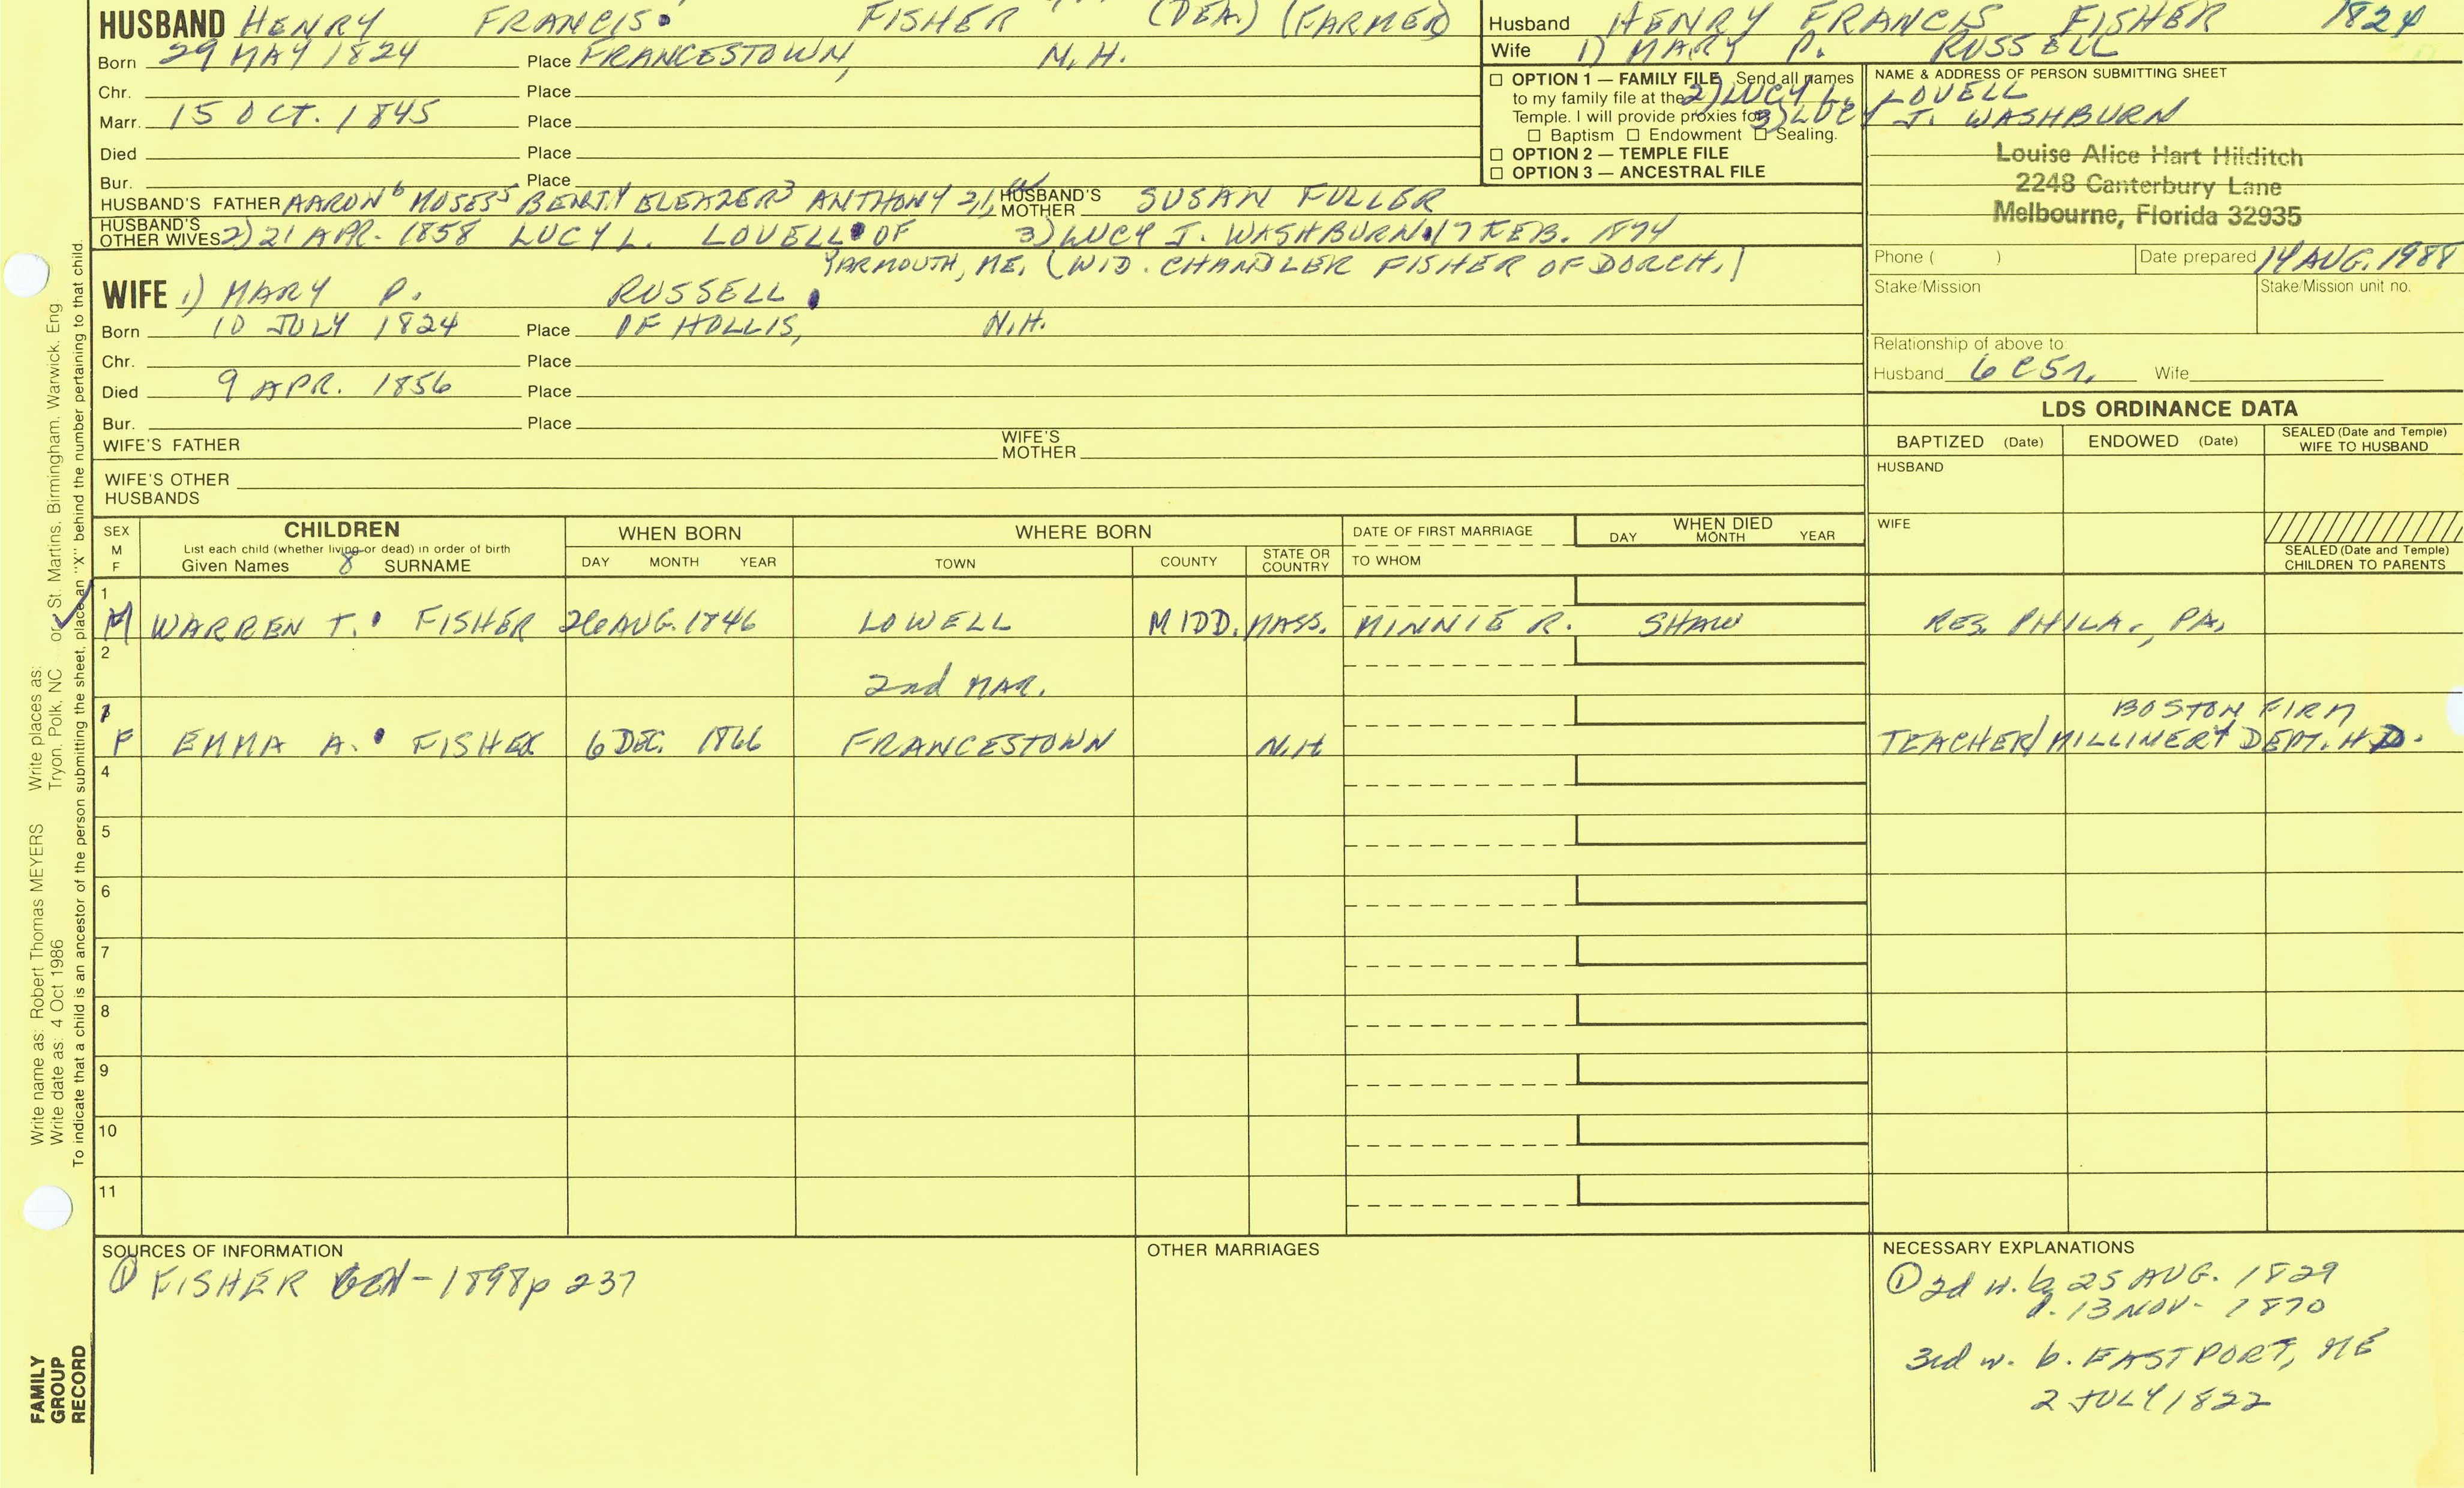 HUSBAND HENRY FRANCIS FISHER (DEA.) (FARMER)
Born 29 MAY 1824 Place FRANCESTOWN, N.H.
Chr. Place
Marr. 15 OCT. 1845 Place
Died Place
Bur. Place
HUSBAND'S FATHER AARON6 MOSES5 BENJ4 ELEAZER3 ANTHONY 2,1 HUSBAND'S MOTHER SUSAN FULLER
HUSBAND'S OTHER WIVES 2) 21 APR. 1858 LUCY L. LOVELL OF 3) LUCY J. WASHBURN 17 FEB. 1874
YARMOUTH, ME. (WID. CHANDLER FISHER OF DORCH.)
WIFE 1) MARY P. RUSSELL
Born 10 JULY 1824 Place OF HOLLIS, N.H.
Chr. Place
Died 9 APR. 1856 Place
Bur. Place
WIFE'S FATHER WIFE'S MOTHER
WIFE'S OTHER HUSBANDS
Husband HENRY FRANCIS FISHER 1824
Wife 1) MARY P. RUSSELL
2) LUCY L. LOVELL
3) LUCY J. WASHBURN
☐ OPTION 1 — FAMILY FILE Send all names
to my family file at the
Temple. I will provide proxies for
☐ Baptism ☐ Endowment ☐ Sealing.
☐ OPTION 2 — TEMPLE FILE
☐ OPTION 3 — ANCESTRAL FILE
NAME & ADDRESS OF PERSON SUBMITTING SHEET
Louise Alice Hart Hilditch
2248 Canterbury Lane
Melbourne, Florida 32935
Phone ( ) Date prepared 14 AUG. 1988
Stake/Mission Stake/Mission unit no.
Relationship of above to:
Husband 6 C5r. Wife
LDS ORDINANCE DATA
BAPTIZED (Date) ENDOWED (Date) SEALED (Date and Temple) WIFE TO HUSBAND
HUSBAND
WIFE
SEALED (Date and Temple) CHILDREN TO PARENTS
SEX M F
CHILDREN
List each child (whether living or dead) in order of birth
Given Names 8 SURNAME
WHEN BORN
DAY MONTH YEAR
WHERE BORN
TOWN COUNTY STATE OR COUNTRY
DATE OF FIRST MARRIAGE
TO WHOM
WHEN DIED
DAY MONTH YEAR
1
M WARREN T. FISHER 26 AUG. 1846 LOWELL MIDD. MASS. MINNIE R. SHAW RES. PHILA., PA.
2
2nd MAR.
BOSTON FIRM
F EMMA A. FISHER 6 DEC. 1866 FRANCESTOWN N.H TEACHER/MILLINERY DEPT. HD.
4
5
6
7
8
9
10
11
SOURCES OF INFORMATION
① FISHER GEN - 1898 p 237
OTHER MARRIAGES
NECESSARY EXPLANATIONS
① 2d w. b. 25 AUG. 1829
d. 13 NOV- 1870
3rd w. b. EASTPORT, ME
2 JULY 1822
Write name as: Robert Thomas MEYERS Write places as:
Write date as: 4 Oct 1986 Tryon, Polk, NC or St. Martins, Birmingham, Warwick, Eng
To indicate that a child is an ancestor of the person submitting the sheet, place an "X" behind the number pertaining to that child.
FAMILY
GROUP
RECORD